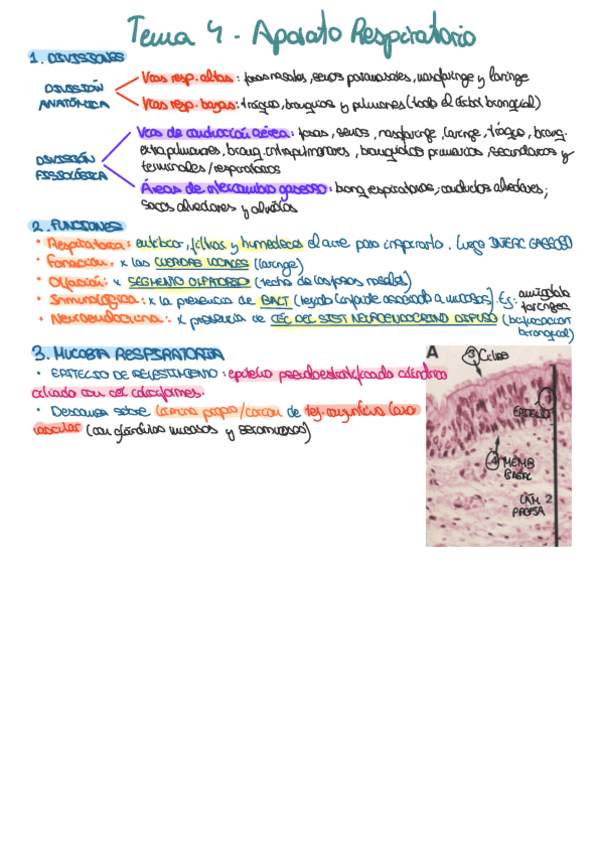 Tema 4 - Aparato Respiratorio
1. DIVISIONES
DIVISIÓN ANATÓMICA
Vías resp. altas: fosas nasales, senos paranasales, nasofaringe y laringe
Vías resp. bajas: tráquea, bronquios y pulmones (todo el árbol bronquial)
DIVISIÓN FISIOLÓGICA
Vías de conducción aérea: fosas, senos, nasofaringe, laringe, tráquea, bronq.
extrapulmonares, bronq. intrapulmonares, bronquiolos primarios, secundarios y
terminales/respiratorios
Áreas de intercambio gaseoso: bronq respiratorios, conductos alveolares,
sacos alveolares y alvéolos
2. FUNCIONES
• Respiratoria: entibiar, filtrar y humedecer el aire para inspirarlo. Luego INTERC GASEOSO
• Fonación: x las CUERDAS VOCALES (laringe)
• Olfación: x SEGMENTO OLFATORIO (techo de las fosas nasales)
• Inmunológica: x la presencia de BALT (tejido linfoide asociado a mucosas). Ej: amígdala faríngea
• Neuroendocrina: x presencia de CÉL DEL SIST NEUROENDOCRINO DIFUSO (bifurcación bronquial)
3. MUCOSA RESPIRATORIA
• EPITELIO DE REVESTIMIENTO: epitelio pseudoestratificado cilíndrico
ciliado con cél caliciformes.
• Descansa sobre lámina propia/corion de tej. conjuntivo laxo
vascular (con glándulas mucosas y seromucosas)
A
3 Cilios
1
EPITELIO
4 MEMB BASAL
LÁM 2 PROPIA